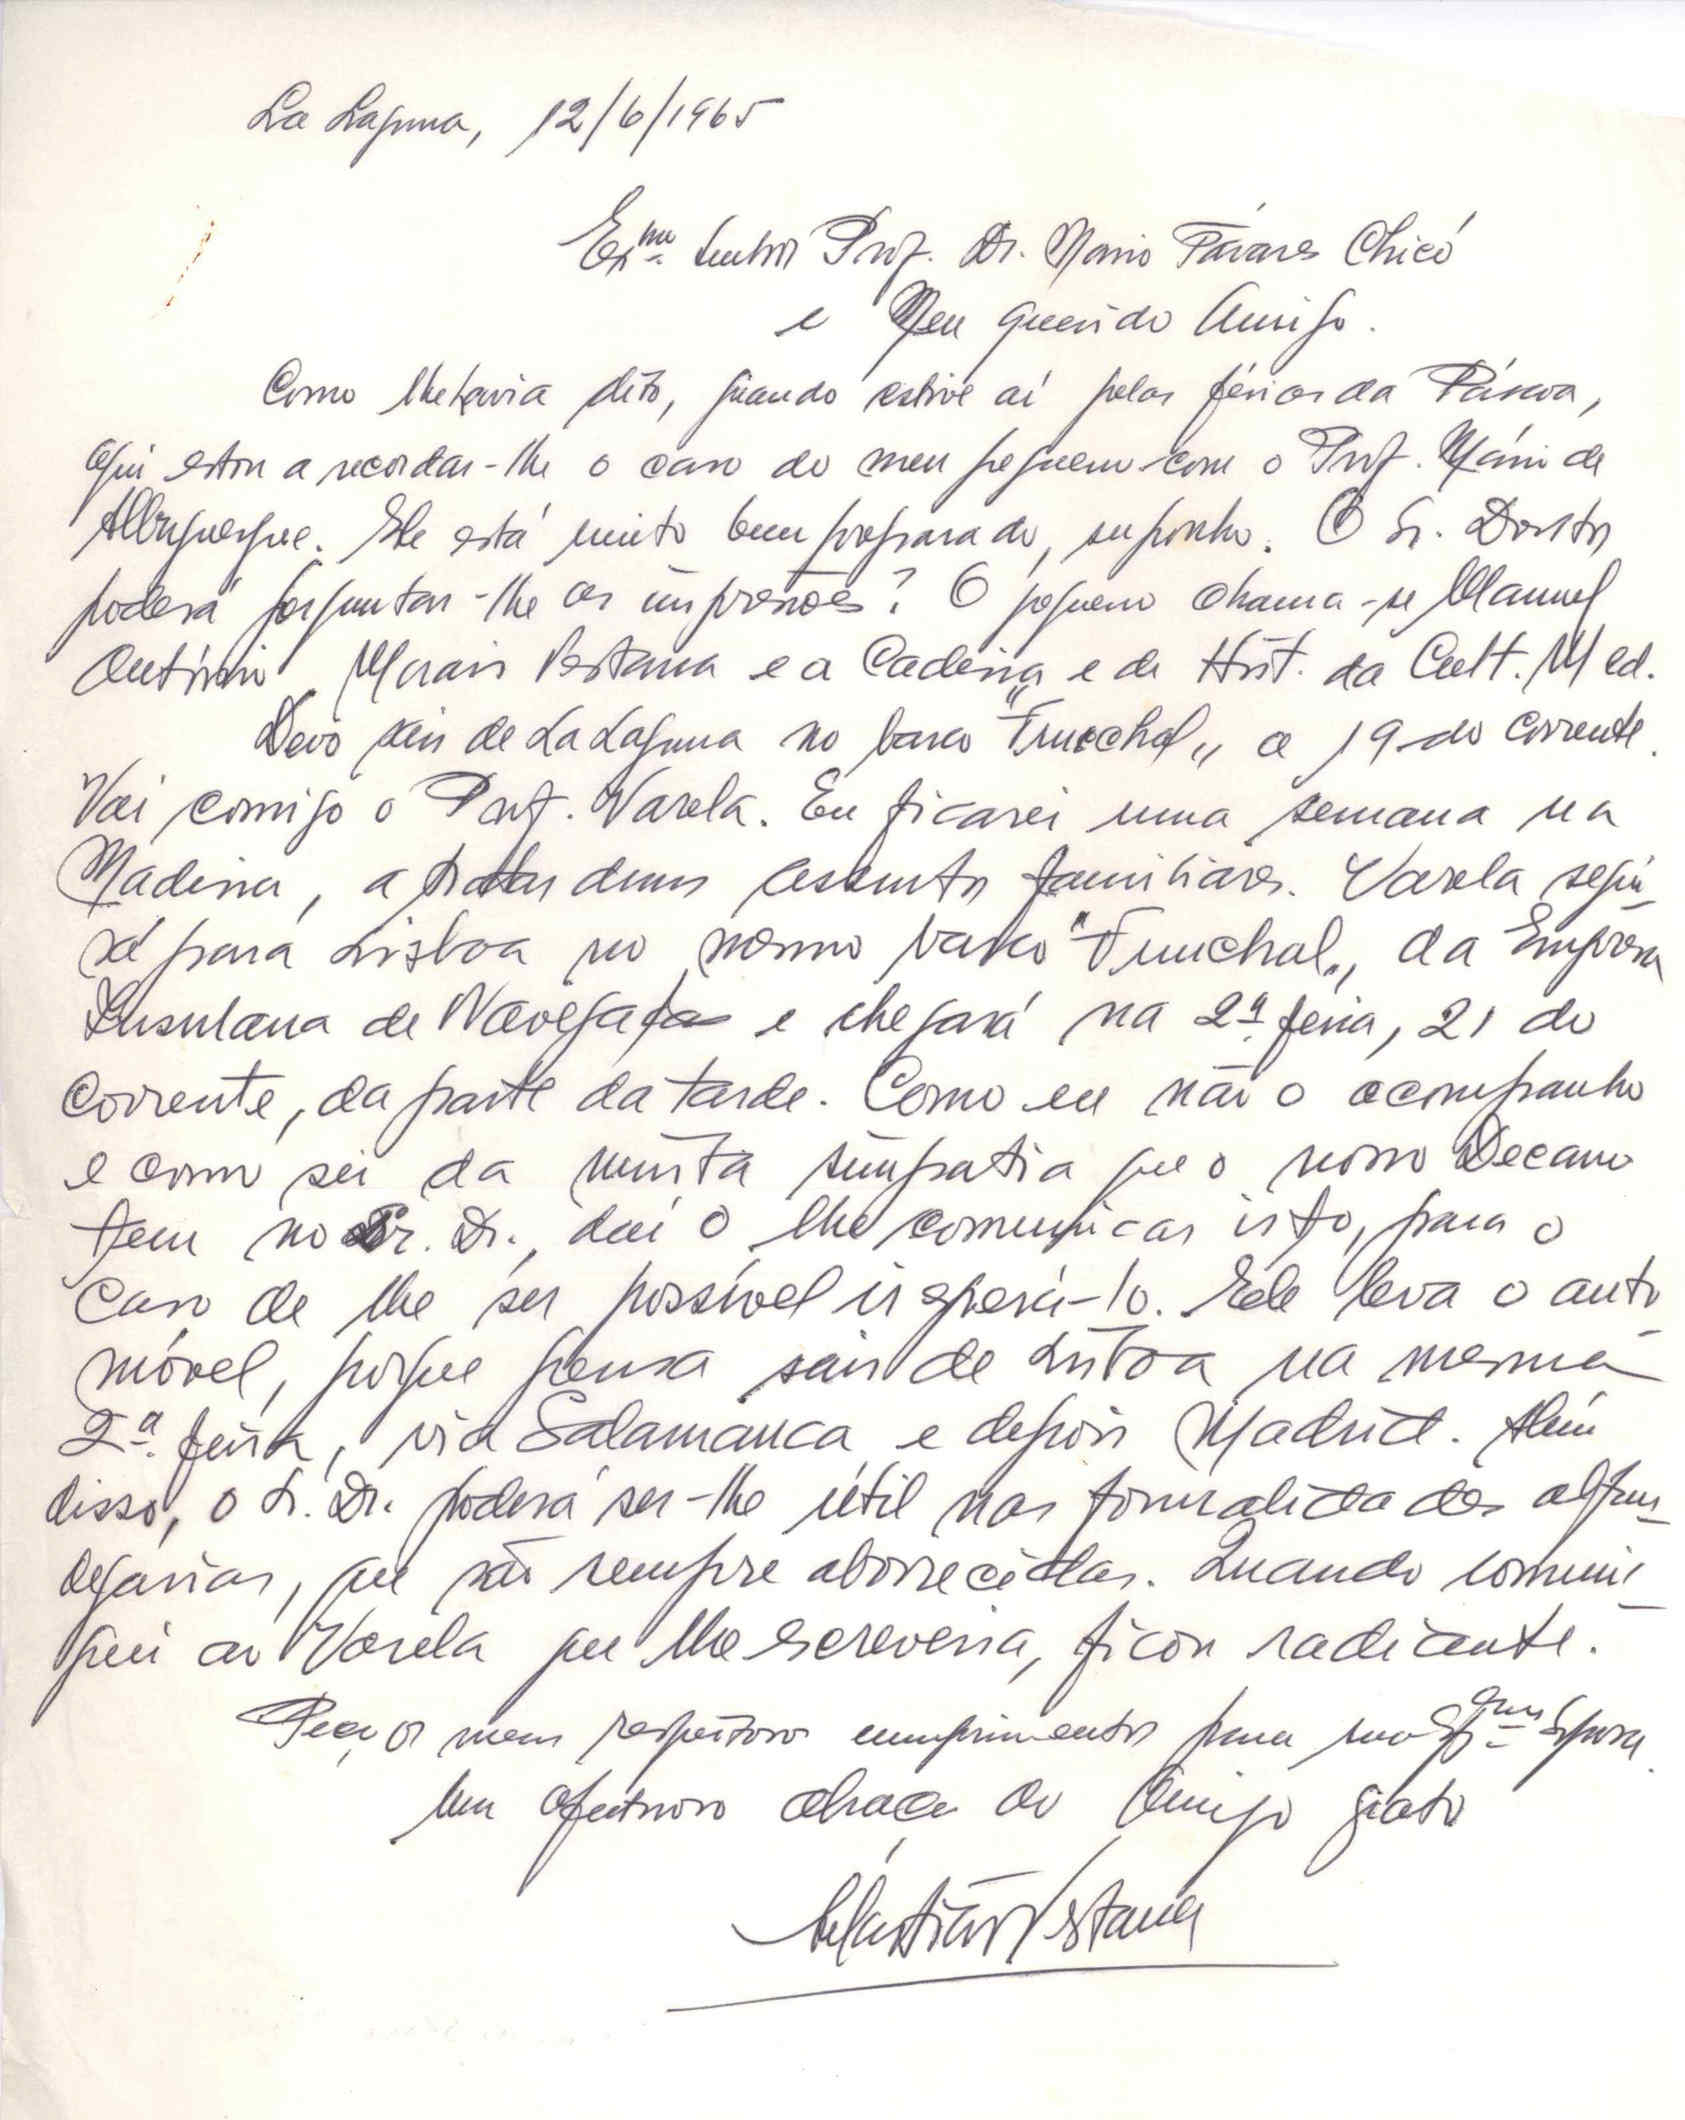 La Laguna, 12/6/1965
Exmo. Senhor Prof. Dr. Mario Távares Chicó
e Meu querido Amigo.
Como lhe havia dito, quando estive aí pelas férias da Páscoa,
aqui estou a recordar-lhe o caso do meu pequeno com o Prof. Mário de
Albuquerque. Ele está muito bem preparado, suponho. O Sr. Doutor
poderá perguntar-lhe as impressões? O pequeno chama-se Manuel
António Morais Pestana e a Cadeira e de Hist. da Cult. Med.
Devo sair de La Laguna no barco "Funchal„ a 19 do corrente.
Vai comigo o Prof. Varela. Eu ficarei uma semana na
Madeira, a tratar duns assuntos familiares. Varela segui-
rá para Lisboa no mesmo barco "Funchal„, da Emprêsa
Insulana de Navegação e chegará na 2ª feira, 21 do
corrente, da parte da tarde. Como eu não o acompanho
e como sei da muita simpatia que o nosso Decano
tem no Sr. Dr., daí o lhe comunicar isto, para o
caso de lhe ser possível ir esperá-lo. Ele leva o auto-
móvel, porque pensa sair de Lisboa na mesma
2ª. feira, via Salamanca e depois Madrid. Além
disso, o Sr. Dr. poderá ser-lhe útil nas formalidades alfan-
degarias, que são sempre aborrecidas. Quando comuni-
quei ao Varela que lhe escreveria, ficou radiante.
Peço os meus respeitosos cumprimentos para sua Exma. Esposa.
Um afectuoso abraço do Amigo grato
Sebastião Pestana